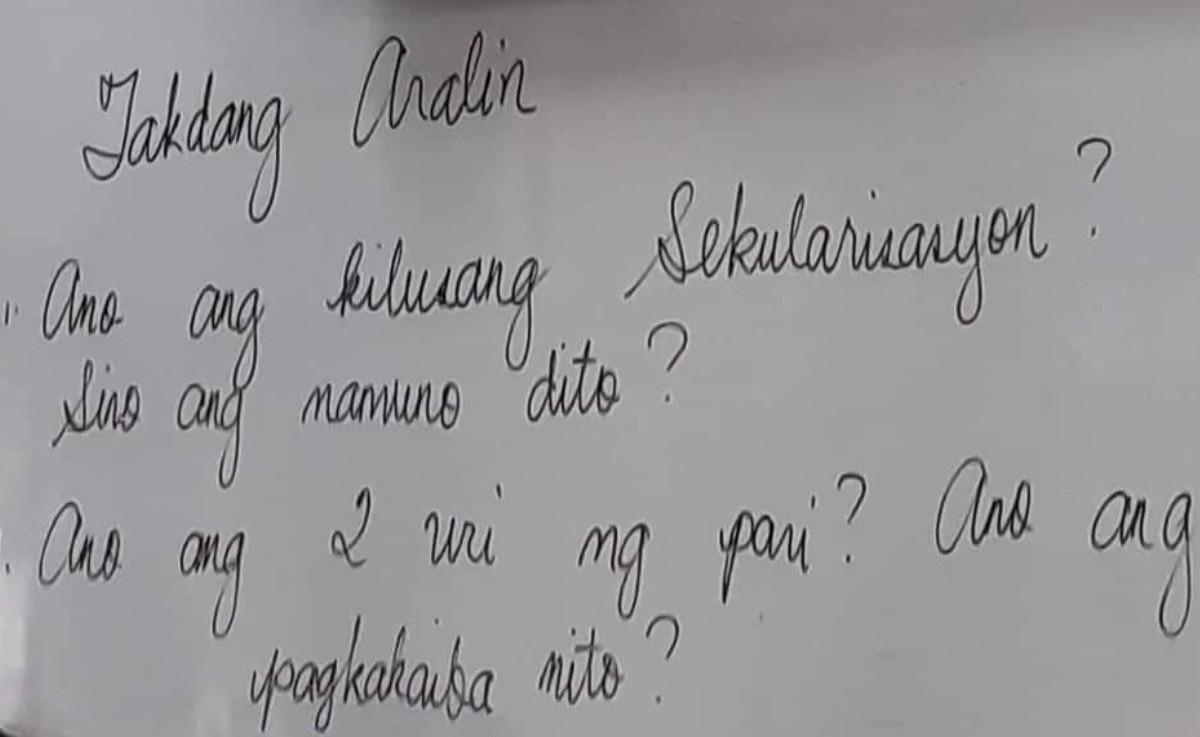 Takdang Aralin
1. Ano ang kilusang Sekularisasyon?
Sino ang namuno dito?
. Ano ang 2 uri ng pari? Ano ang
pagkakaiba nito?